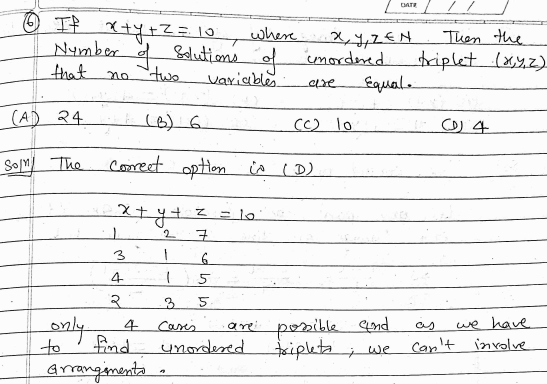 DATE
⑥ If x+y+z=10, where x,y,z∈N Then the
Nymber of Solutions of unordered triplet (x,y,z)
that no two variables are Equal.
(A) 24 (B) 6 (C) 10 (D) 4
Solⁿ) The correct option is (D)
x+y+z=10
1 2 7
3 1 6
4 1 5
2 3 5
only 4 cases are possible and as we have
to find unordered triplets, we can't involve
arrangements.